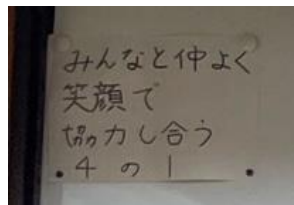 みんなと仲よく
笑顔で
協力し合う
4の1